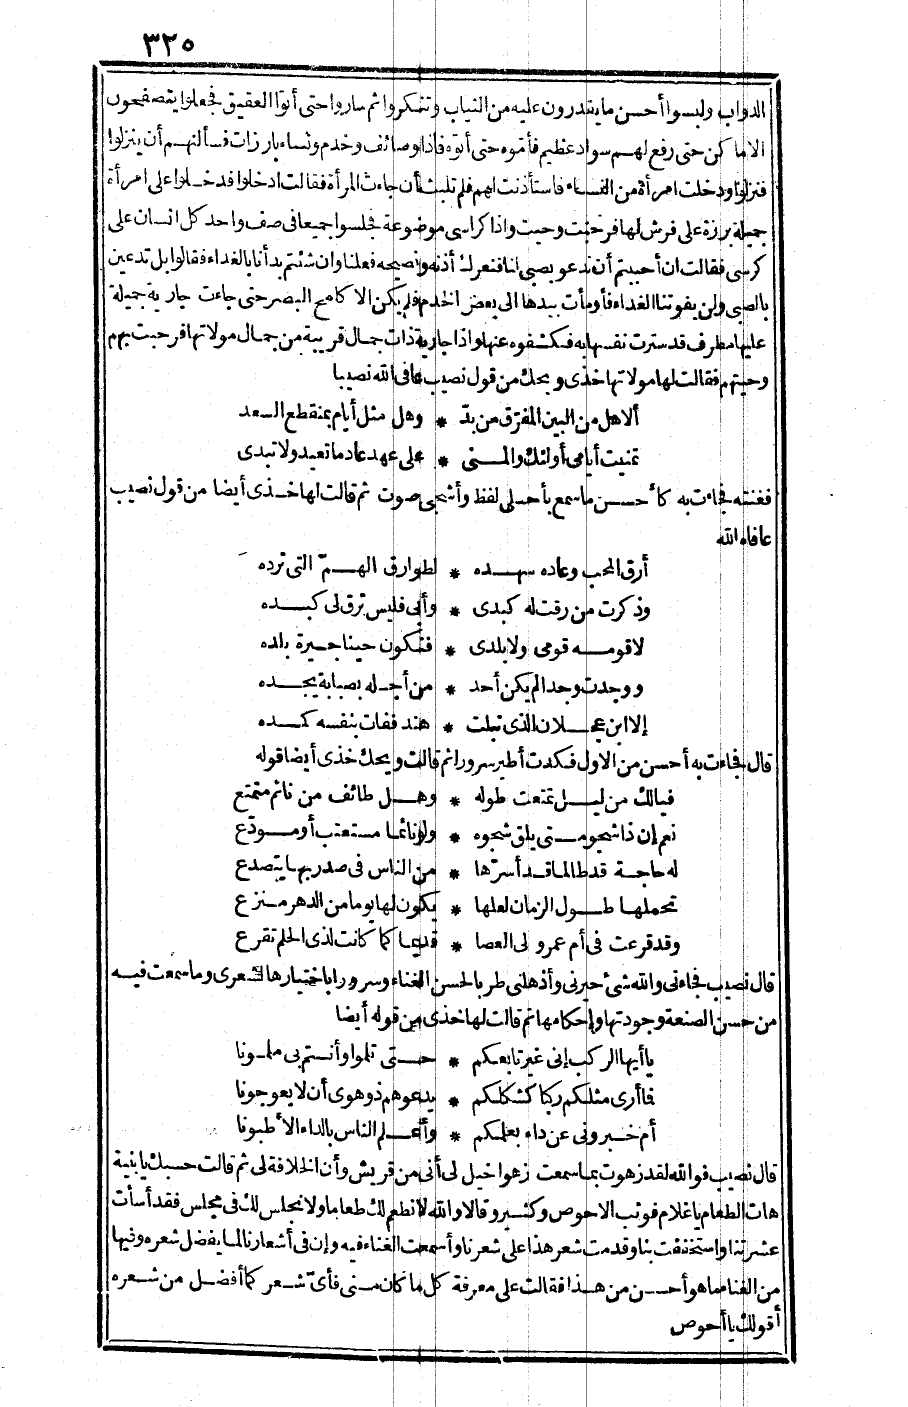 ٣٢٥
الدواب ولبسوا أحسن ما يقدرون عليه من الثياب وتنكروا ثم ساروا حتى أتوا العقيق فجعلوا يتصفحون
الاماكن حتى رفع لهم سواد عظيم فأموه حتى أتوه فاذا وصائف وخدم ونساء بارزات فسألنهم أن ينزلوا
فنزلوا ودخلت امرأة من النساء فاستأذنت لهم فلم تلبث أن جاءت المرأة فقالت ادخلوا فدخلوا على امرأة
جميلة برزة على فرش لها فرحبت وحيت واذا كراسي موضوعة فجلسوا جميعا في صف واحد كل انسان على
كرسي فقالت ان أحببتم أن ندعو بصبي لنا فنعرك أذنه ونصيحه فعلنا وان شئتم بدأنا بالغداء فقالوا بل تدعين
بالصبي ولن يفوتنا الغداء فأومأت بيدها الى بعض الخدم فلم يكن الا كلمح البصر حتى جاءت جارية جميلة
عليها مطرف قد سترت نفسها به فكشفوه عنها واذا جارية ذات جمال قريبة من جمال مولاتها فرحبت بهم
وحيتهم فقالت لها مولاتها خذي ويحك من قول نصيب عافى الله نصيبا
ألا هل من البين المفرّق من بدّ * وهل مثل أيام بمنقطع السعد
تمنيت أيامي أولئك والمنى * على عهد عاد ما تعيد ولا تبدى
فغنته فجاءت به كأحسن ما سمع بأحلى لفظ وأشجى صوت ثم قالت لها خذي أيضا من قول نصيب
عافاه الله
أرق المحب وعاده سهده * لطوارق الهمّ التي ترده
وذكرت من رقت له كبدى * وأبى فليس ترق لى كبده
لا قومه قومى ولا بلدى * فنكون حينا جيرة بلده
ووجدت وجدا لم يكن أحد * من أجله بصبابة يجده
إلا ابن عجلان الذى تبلت * هند ففات بنفسه كمده
قال فجاءت به أحسن من الاول فكدت أطير سرورا ثم قالت ويحك خذي أيضا قوله
فيالك من ليل تمتعت طوله * وهل طائف من نائم متمتع
نعم إن ذا شجو متى يلق شجوه * ولو نائما مستعتب أو مودّع
له حاجة قد طالما قد أسرّها * من الناس في صدر بها يتصدع
تحملها طول الزمان لعلها * يكون لها يوما من الدهر منزع
وقد قرعت في أم عمرو لى العصا * قديما كما كانت لذى الحلم تقرع
قال نصيب فجاءنى والله شئ حيرنى وأذهلنى طربا لحسن الغناء وسرورا باختيارها لشعرى وما سمعت فيه
من حسن الصنعة وجودتها وإحكامها ثم قالت لها خذى من قوله أيضا
يا أيها الركب إنى غير تابعكم * حتى تلموا وأنتم بى ملمونا
فما أرى مثلكم ركبا كشكلكم * يدعوهم ذو هوى أن لا يعوجونا
أم خبرونى عن داء بعلمكم * وأعلم الناس بالداء الأطبونا
قال نصيب فوالله لقد زهوت بما سمعت زهوا خيل لى أنى من قريش وأن الخلافة لى ثم قالت حسبك يا بنية
هات الطعام يا غلام فوثب الاحوص وكثير وقالا والله لا نطعم لك طعاما ولا نجلس لك في مجلس فقد أسأت
عشرتنا واستخففت بنا وقدمت شعر هذا على شعرنا وأسمعت الغناء فيه وإن في أشعارنا لما يفضل شعره وفيها
من الغناء ما هو أحسن من هذا فقالت على معرفة كل ما كان منى فأىّ شعركما أفضل من شعره
أقولك يا أحوص